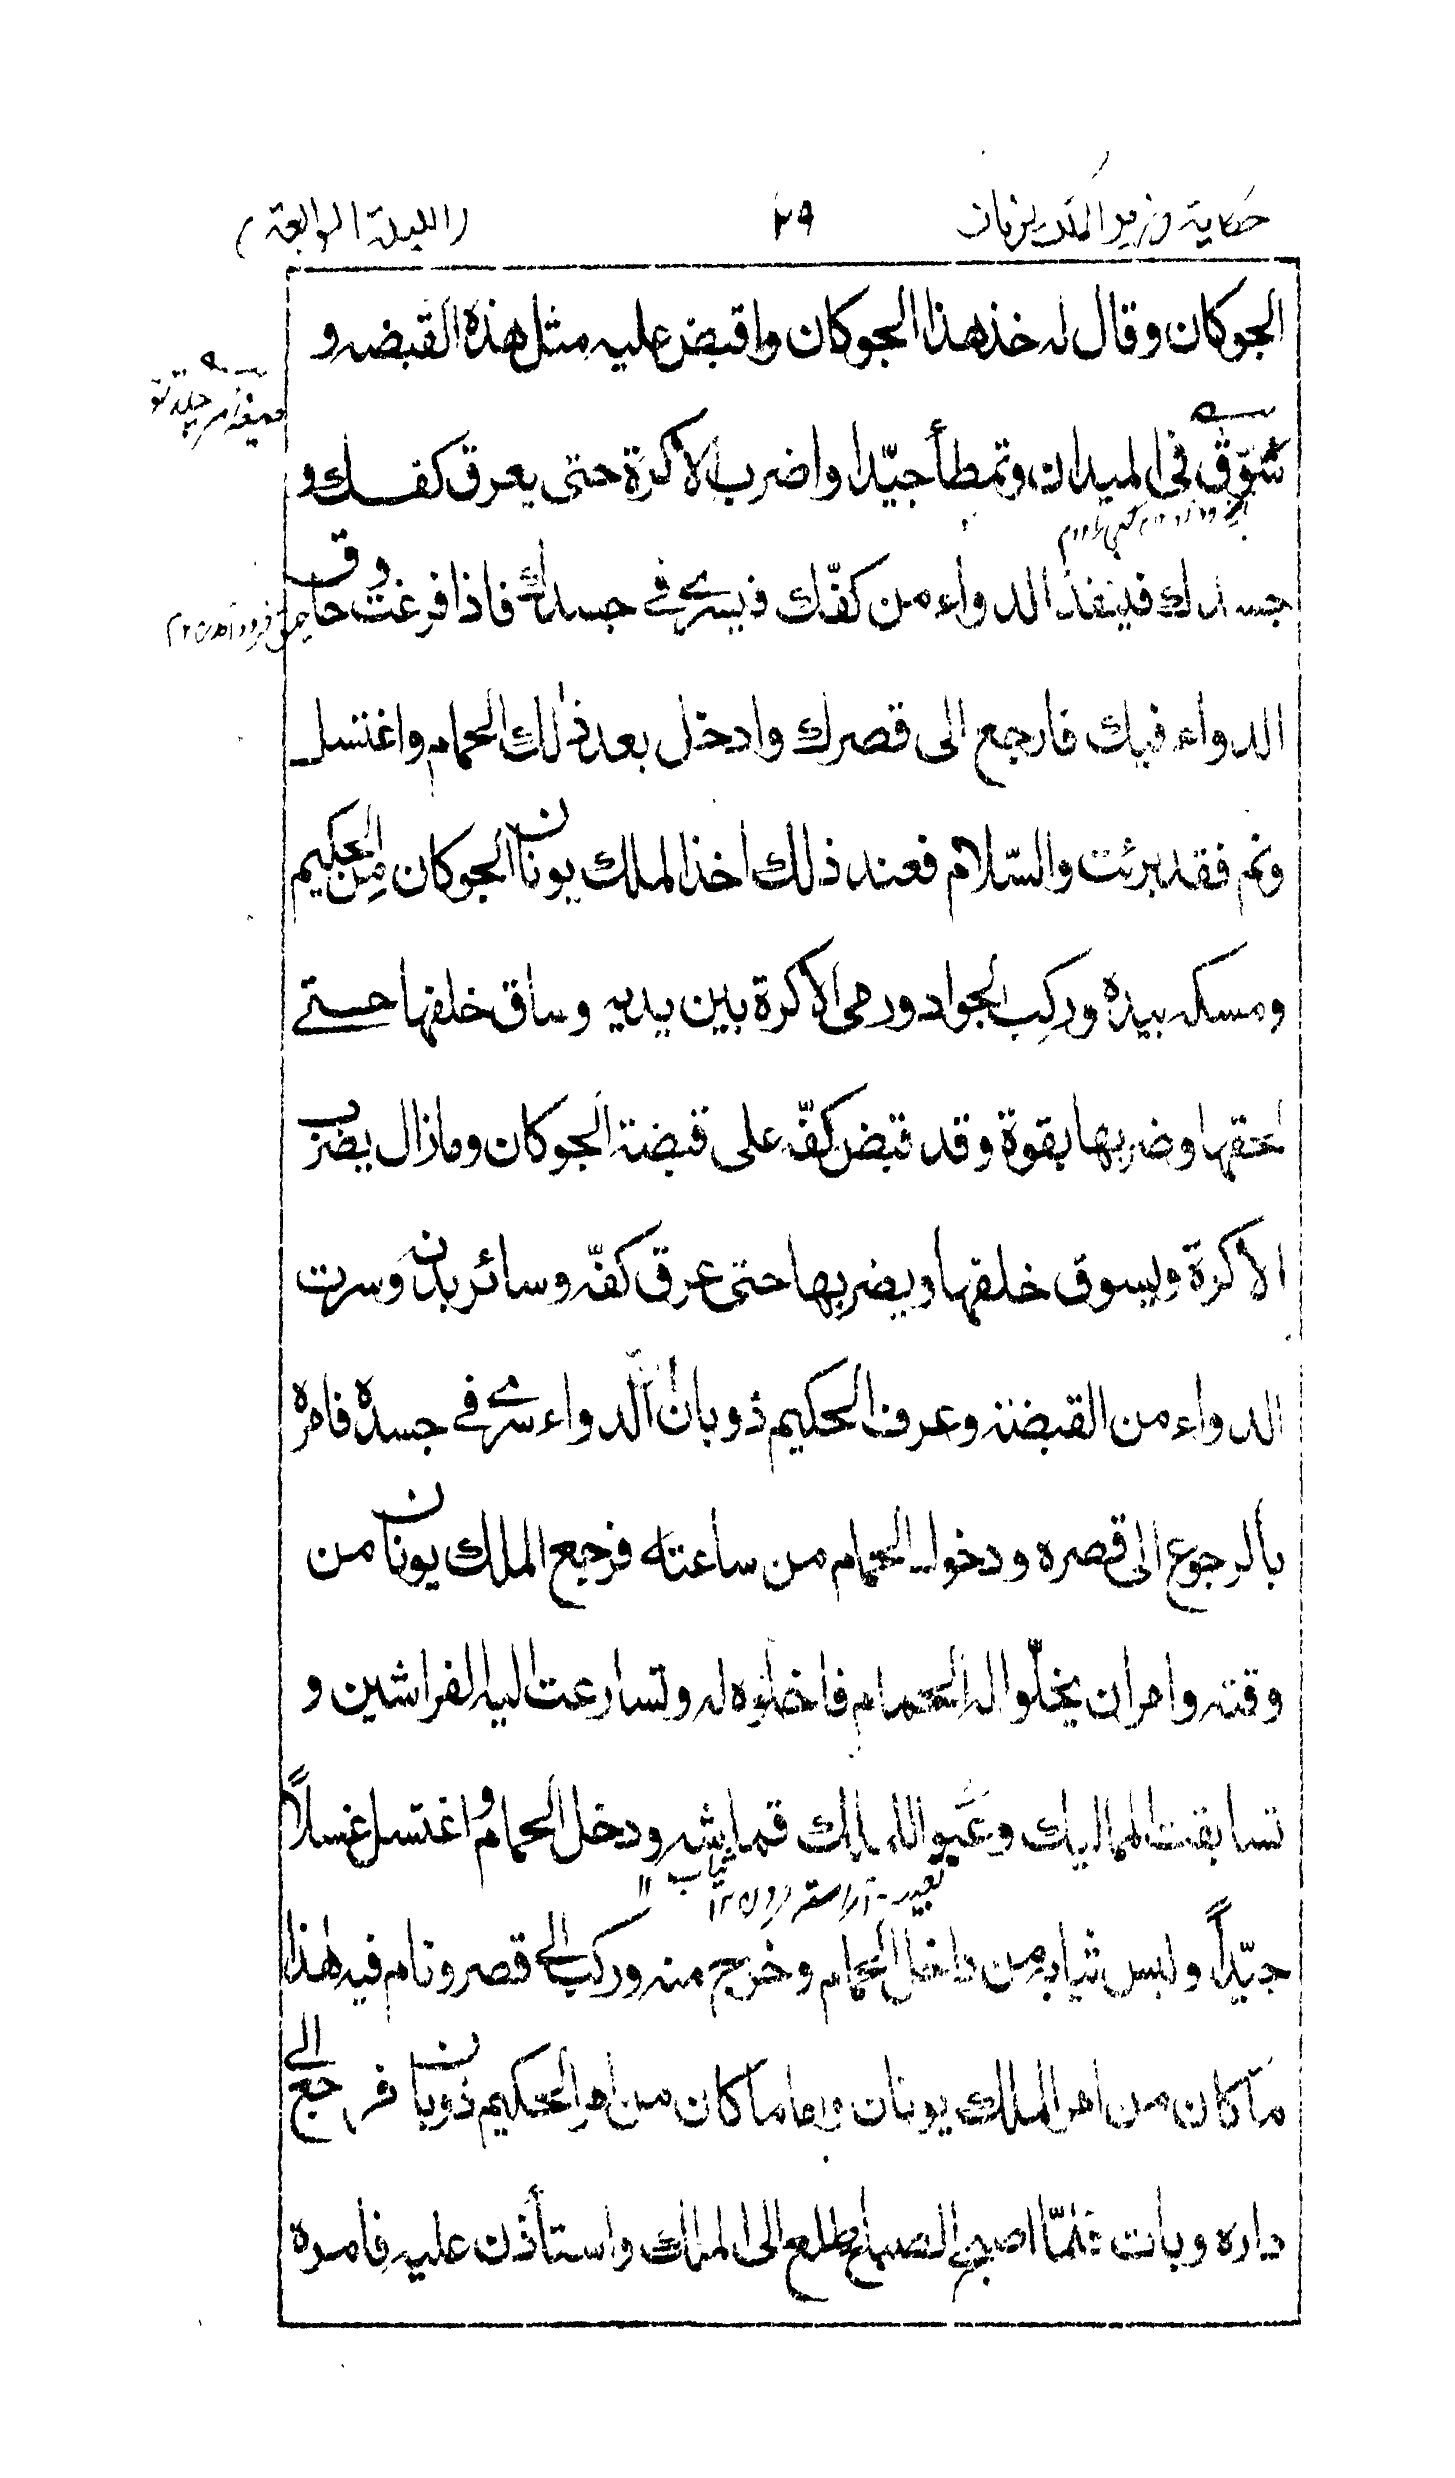 حكاية وزير الملك يونان ٢٩ (الليلة الرابعة)
الجوكان وقال له خذ هذا الجوكان واقبض عليه مثل هذه القبضه و
سُوّق في الميدان وتمطأ جيّدا واضرب الاكرة حتى يعرق كفك و
جسدك فينفذ الدواء من كفّك فيسري في جسدك فاذا فرغت وحاق
الدواء فيك فارجع الى قصرك وادخل بعد ذلك الحمام واغتسل
ونم فقد برئت والسّلام فعند ذلك اخذ الملك يونان الجوكان مِن الحكيم
ومسكه بيده وركب الجواد ورمى الاكرة بين يديه وساق خلفها حتى
لحقها وضربها بقوة وقد قبض كفّه على قبضة الجوكان وما زال يضرب
الاكرة ويسوق خلفها ويضربها حتى عرق كفّه وسائر بدنه وسرت
الدواء من القبضة وعرف الحكيم ذوبان انّ الدواء سرى في جسده فامره
بالرجوع الى قصره ودخول الحمام من ساعته فرجع الملك يونان من
وقته وامر ان يخلّوا له الحمام فاخلوه له وتسارعت اليه الفراشين و
تسابقت المماليك وعَبّو الملك قماشه ودخل الحمام واغتسل غسلاً
ثياب
جيّداً ولبس ثيابه من داخل الحمام وخرج منه وركب الى قصر ونام فيه هذا
ما كان من امر الملك يونان واما ما كان من امر الحكيم ذوبان فرجع الى
داره وبات فلمّا اصبح الصباح طلع الى الملك واستأذن عليه فامره